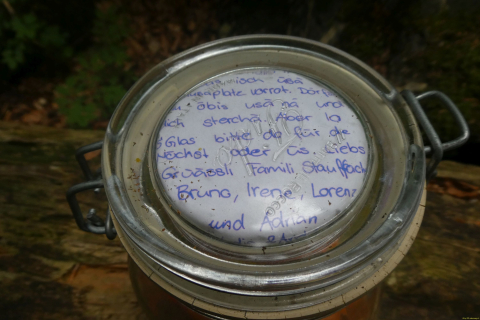 isch üsä
vorrat. Dörf
äbis usä nä und
ich sterchä. Aber la
s Glas bitte da für die
Nöchst oder üs. Liebs
Grüässli Famili Stauffach
Bruno, Irene, Lorenz
und Adrian